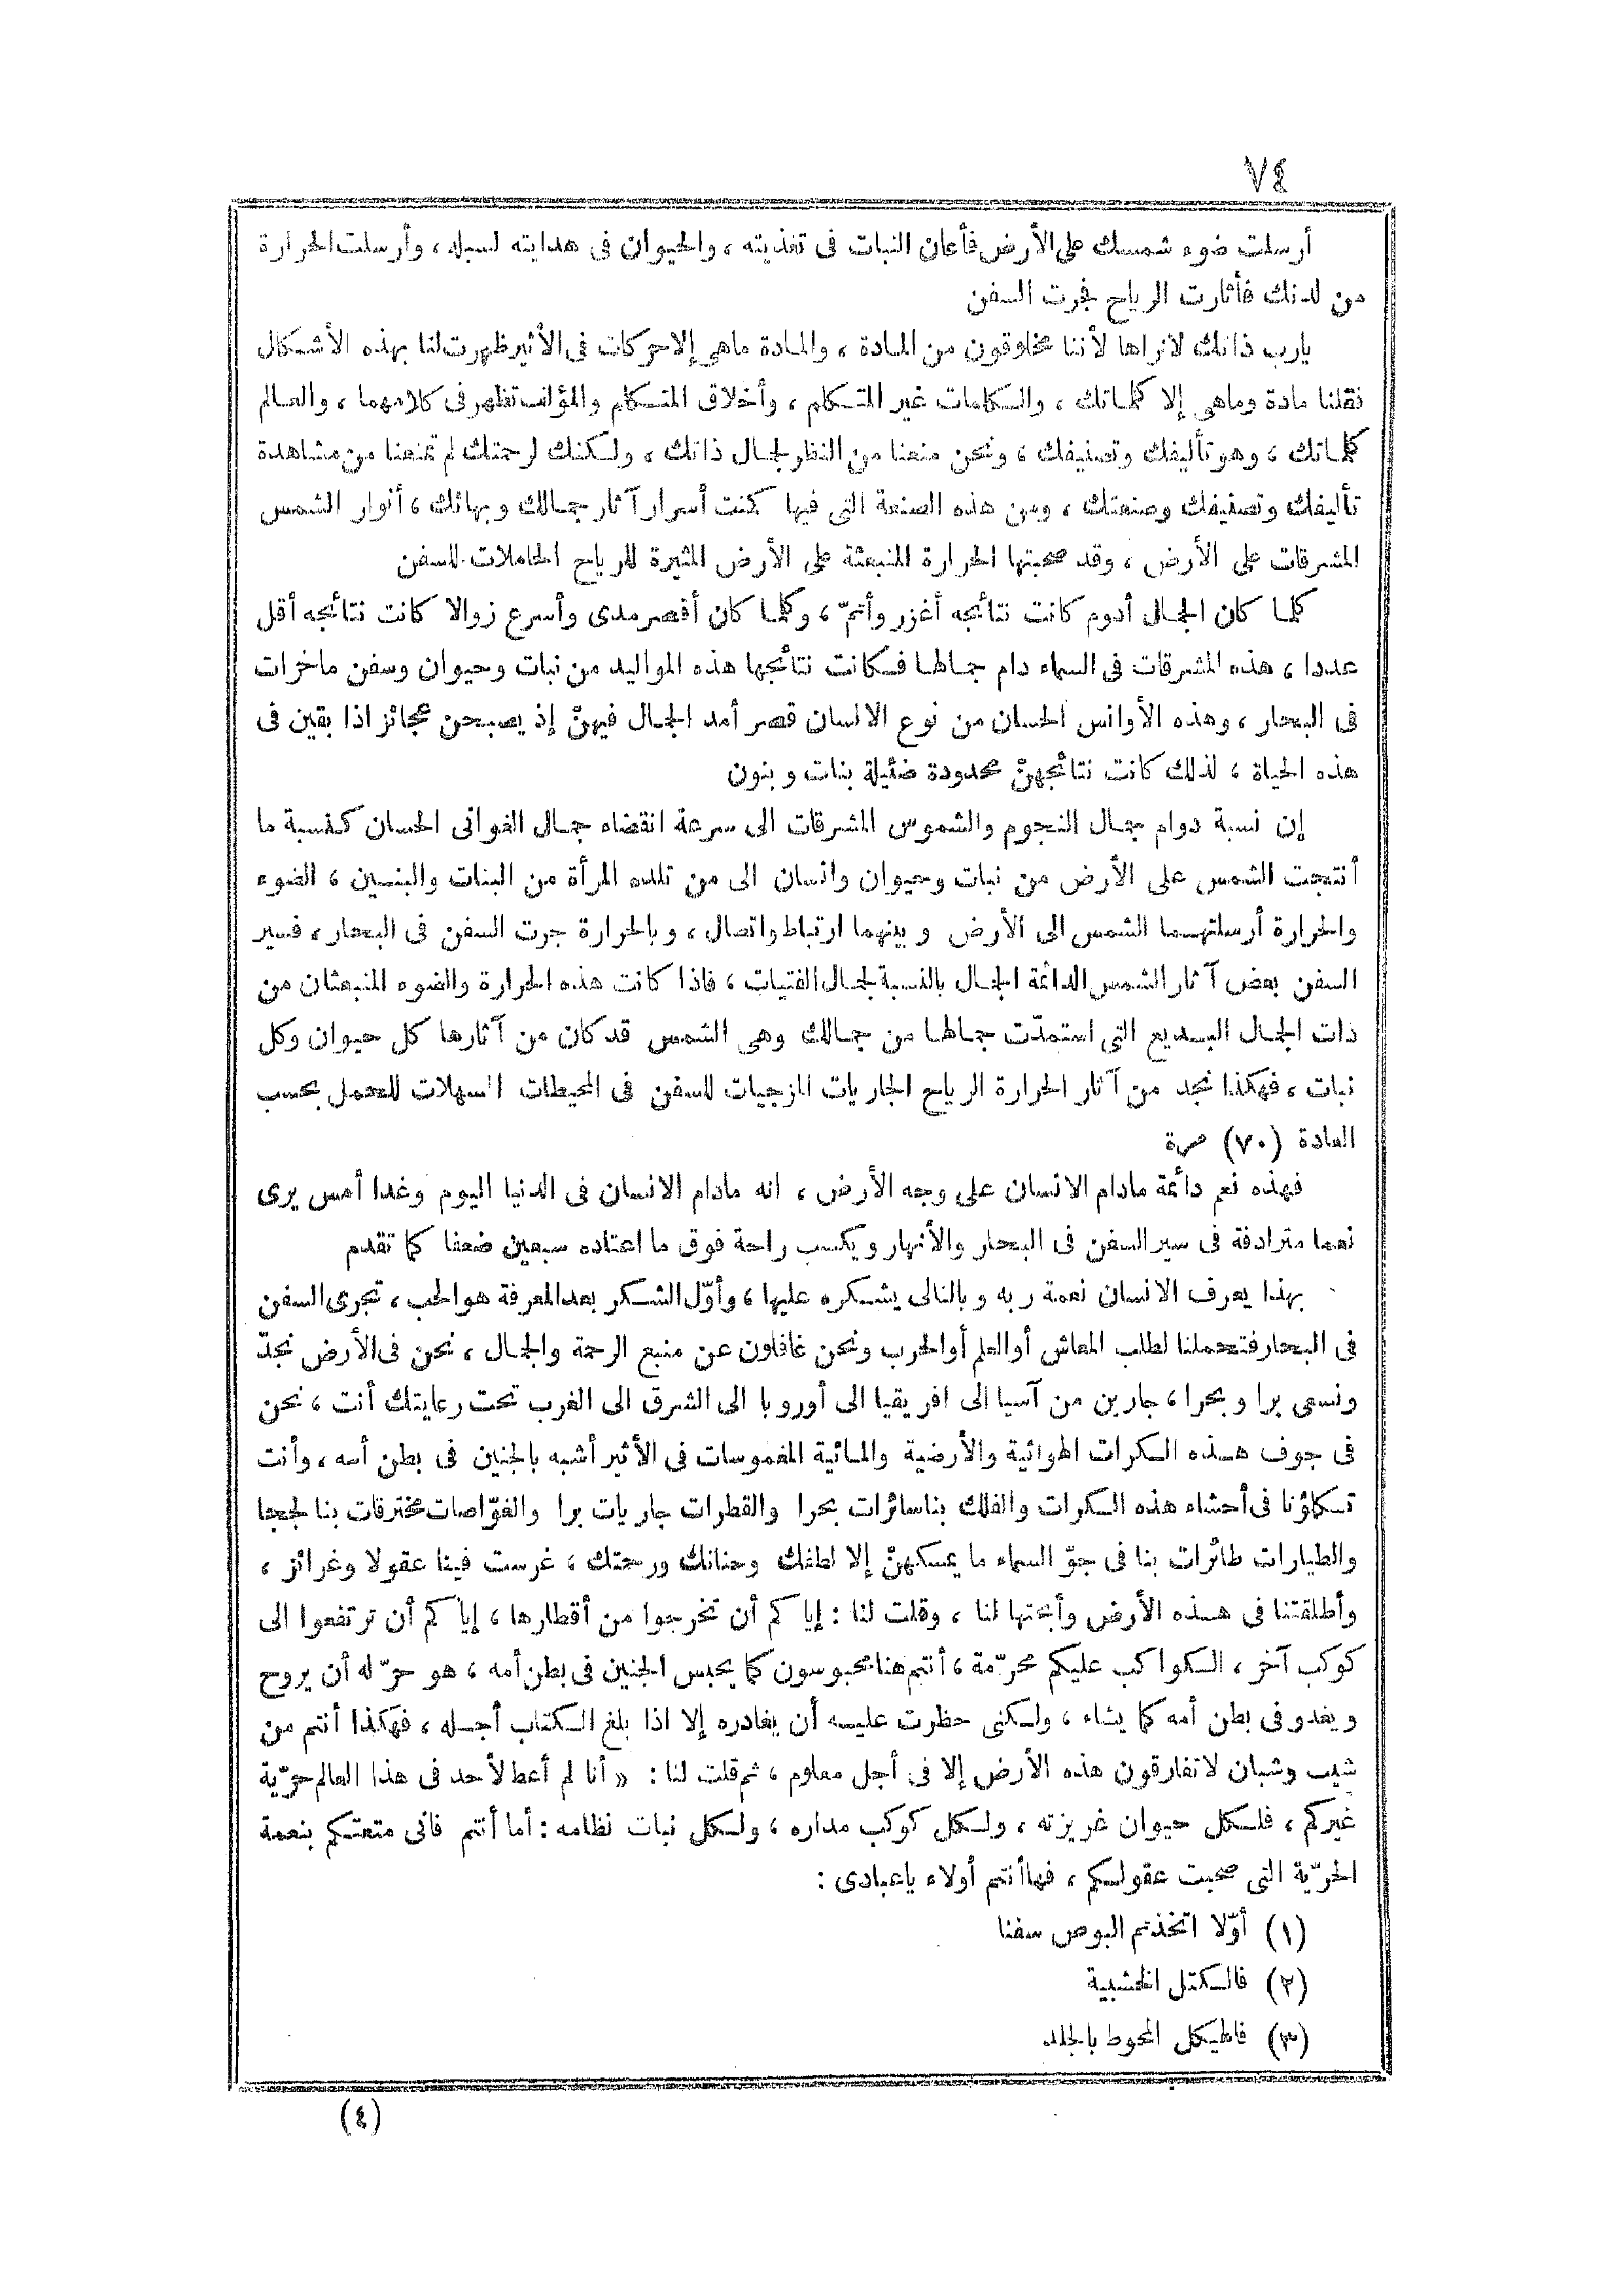 ٧٤
أرسلت ضوء شمسك على الأرض فأعان النبات فى تغذيته ، والحيوان فى هدايته لسبله ، وأرسلت الحرارة
من لدنك فأثارت الرياح فجرت السفن
يارب ذاتك لانراها لأننا مخلوقون من المادة ، والمادة ماهى إلا حركات فى الأثير ظهرت لنا بهذه الأشكال
فقلنا مادة وماهى إلا كلماتك ، والكلمات غير المتكلم ، وأخلاق المتكلم والمؤلف تظهر فى كلامهما ، والعالم
كلماتك ، وهو تأليفك وتصنيفك ، ونحن منعنا من النظر لجمال ذاتك ، ولكنك لرحمتك لم تمنعنا من مشاهدة
تأليفك وتصنيفك وصنعتك ، ومن هذه الصنعة التى فيها كنت أسرار آثار جمالك وبهائك ، أنوار الشمس
المشرقات على الأرض ، وقد صحبتها الحرارة المنبعثة على الأرض المثيرة للرياح الحاملات للسفن
كلما كان الجمال أدوم كانت نتائجه أغزر وأتمّ ، وكلما كان أقصر مدى وأسرع زوالا كانت نتائجه أقل
عددا ، هذه المشرقات فى السماء دام جمالها فكانت نتائجها هذه المواليد من نبات وحيوان وسفن ماخرات
فى البحار ، وهذه الأوانس الحسان من نوع الانسان قصر أمد الجمال فيهنّ إذ يصبحن عجائز اذا بقين فى
هذه الحياة ، لذلك كانت نتائجهنّ محدودة ضئيلة بنات و بنون
إن نسبة دوام جمال النجوم والشموس المشرقات الى سرعة انقضاء جمال الغوانى الحسان كنسبة ما
أنتجت الشمس على الأرض من نبات وحيوان وانسان الى من تلده المرأة من البنات والبنين ، الضوء
والحرارة أرسلتهما الشمس الى الأرض و بينهما ارتباط واتصال ، و بالحرارة جرت السفن فى البحار ، فسير
السفن بعض آثار الشمس الدائمة الجمال بالنسبة لجمال الفتيات ، فاذا كانت هذه الحرارة والضوء المنبعثان من
ذات الجمال البديع التى استمدّت جمالها من جمالك وهى الشمس قد كان من آثارها كل حيوان وكل
نبات ، فهكذا نجد من آثار الحرارة الرياح الجاريات المزجيات للسفن فى المحيطات المسهلات للعمل بحسب
العادة (٧٠) مرة
فهذه نعم دائمة مادام الانسان على وجه الأرض ، انه مادام الانسان فى الدنيا اليوم وغدا أمس يرى
نعما مترادفة فى سير السفن فى البحار والأنهار و يكسب راحة فوق ما اعتاده سبعين ضعفا كما تقدم
بهذا يعرف الانسان نعمة ربه و بالتالى يشكره عليها ، وأوّل الشكر بعد المعرفة هو الحب ، تجرى السفن
فى البحار فتحملنا لطلب المعاش أو العلم أو الحرب ونحن غافلون عن منبع الرحمة والجمال ، نحن فى الأرض نجدّ
ونسعى برا و بحرا ، جارين من آسيا الى افريقيا الى أوروبا الى الشرق الى الغرب تحت رعايتك أنت ، نحن
فى جوف هذه الكرات الهوائية والأرضية والمائية المغموسات فى الأثير أشبه بالجنين فى بطن أمه ، وأنت
تكلؤنا فى أحشاء هذه الكرات والفلك بنا سائرات بحرا والقطرات جاريات برا والغوّاصات مخترقات بنا لججا
والطيارات طائرات بنا فى جوّ السماء ما يمسكهنّ إلا لطفك وحنانك ورحمتك ، غرست فينا عقولا وغرائز ،
وأطلقتنا فى هذه الأرض وأبحتها لنا ، وقلت لنا : إياكم أن تخرجوا من أقطارها ، إياكم أن ترتفعوا الى
كوكب آخر ، الكواكب عليكم محرّمة ، أنتم هنا محبوسون كما يحبس الجنين فى بطن أمه ، هو حرّ له أن يروح
ويغدو فى بطن أمه كما يشاء ، ولكنى حظرت عليه أن يغادره إلا اذا بلغ الكتاب أجله ، فهكذا أنتم من
شيب وشبان لاتفارقون هذه الأرض إلا فى أجل معلوم ، ثم قلت لنا : « أنا لم أعط لأحد فى هذا العالم حرّية
غيركم ، فلكل حيوان غريزته ، ولكل كوكب مداره ، ولكل نبات نظامه : أما أنتم فانى متعتكم بنعمة
الحرّية التى صحبت عقولكم ، فها أنتم أولاء ياعبادى :
(١) أوّلا اتخذتم البوص سفنا
(٢) فالكتل الخشبية
(٣) فالهيكل المحوط بالجلد
(٤)